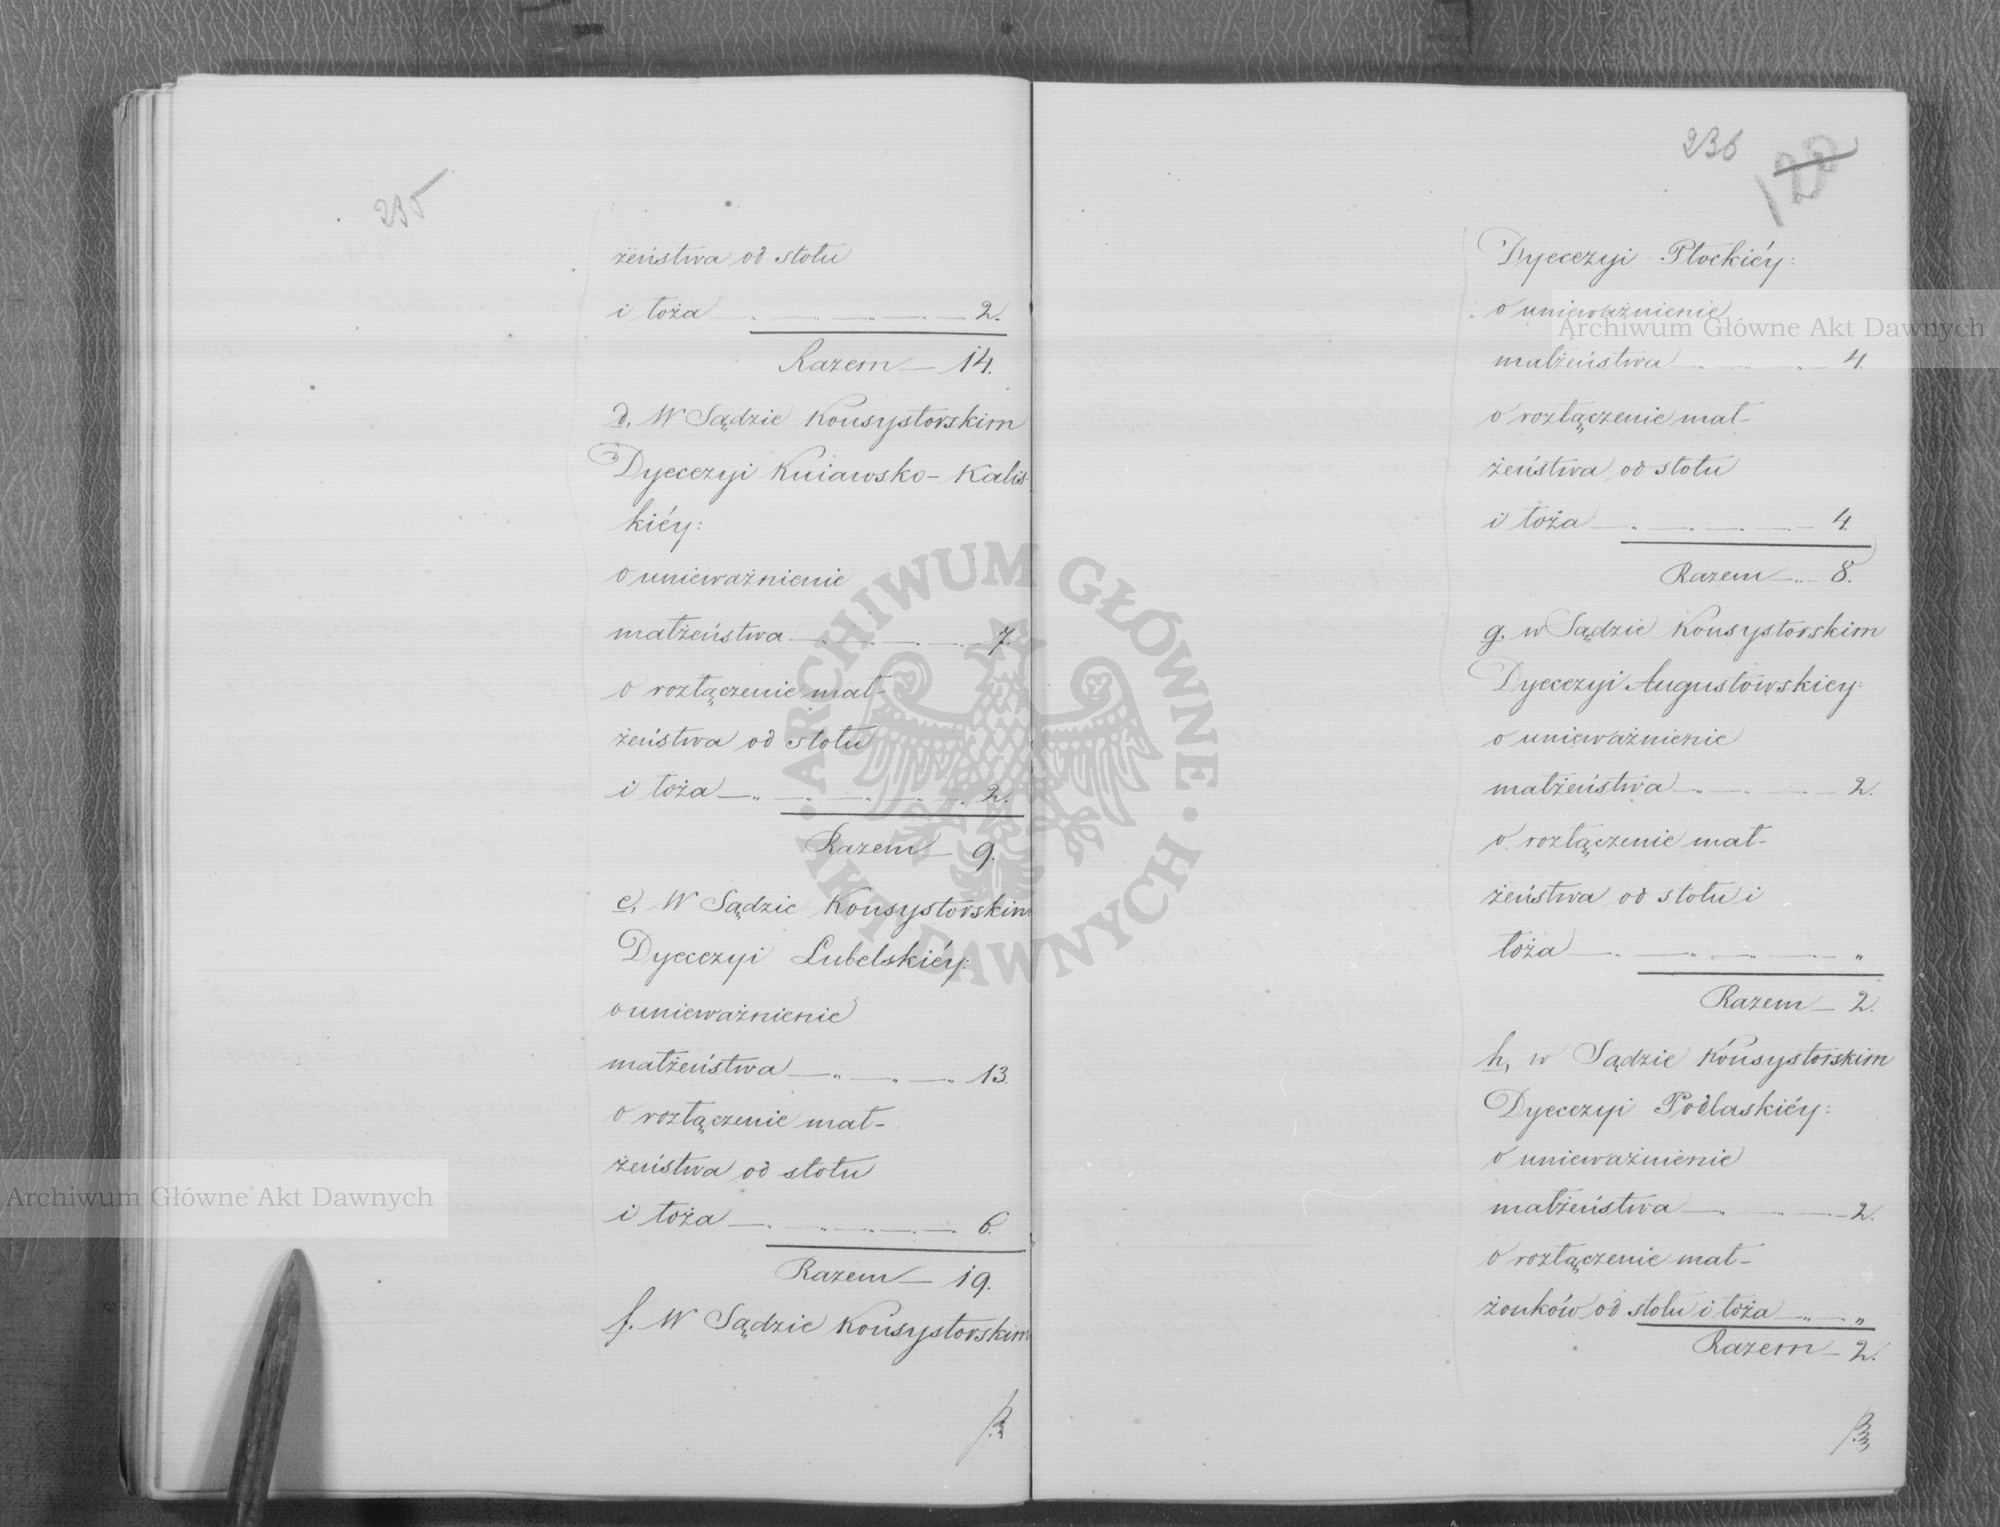 235
żeństwa od stołu
i łoża — „ — „ — „ — „ — 2.
Razem — 14.
d, W Sądzie Konsystorskim
Dyecezyi Kuiawsko-Kalis-
kiéy:
o unieważnienie
małżeństwa — „ — „ — „ — 7.
o rozłączenie mał-
żeństwa od stołu
i łoża — „ — „ — „ — „ — 2.
Razem — 9.
e, W Sądzie Konsystorskim
Dyecezyi Lubelskiéy:
o unieważnienie
małżeństwa — „ — „ — „ 13.
o rozłączenie mał-
żeństwa od stołu
i łoża — „ — „ — „ — „ — 6.
Razem — 19.
f. W Sądzie Konsystorskim
236
Dyecezyi Płockiéy:
o unieważnienie
małżeństwa — „ — „ — 4.
o rozłączenie mał-
żeństwa od stołu
i łoża — „ — „ — „ — 4.
Razem — „ — 8.
g. w Sądzie Konsystorskim
Dyecezyi Augustowskiey:
o unieważnienie
małżeństwa — „ — „ — 2.
o rozłączenie mał-
żeństwa od stołu i
łoża — „ — „ — „ — „
Razem — 2.
h, w Sądzie Konsystorskim
Dyecezyi Podlaskiéy:
o unieważnienie
małżeństwa — „ — „ — 2.
o rozłączenie mał-
żonków od stołu i łoża — „ — „
Razem — 2.
Archiwum Główne Akt Dawnych
Archiwum Główne Akt Dawnych
ARCHIWUM GŁÓWNE · AKT DAWNYCH ·